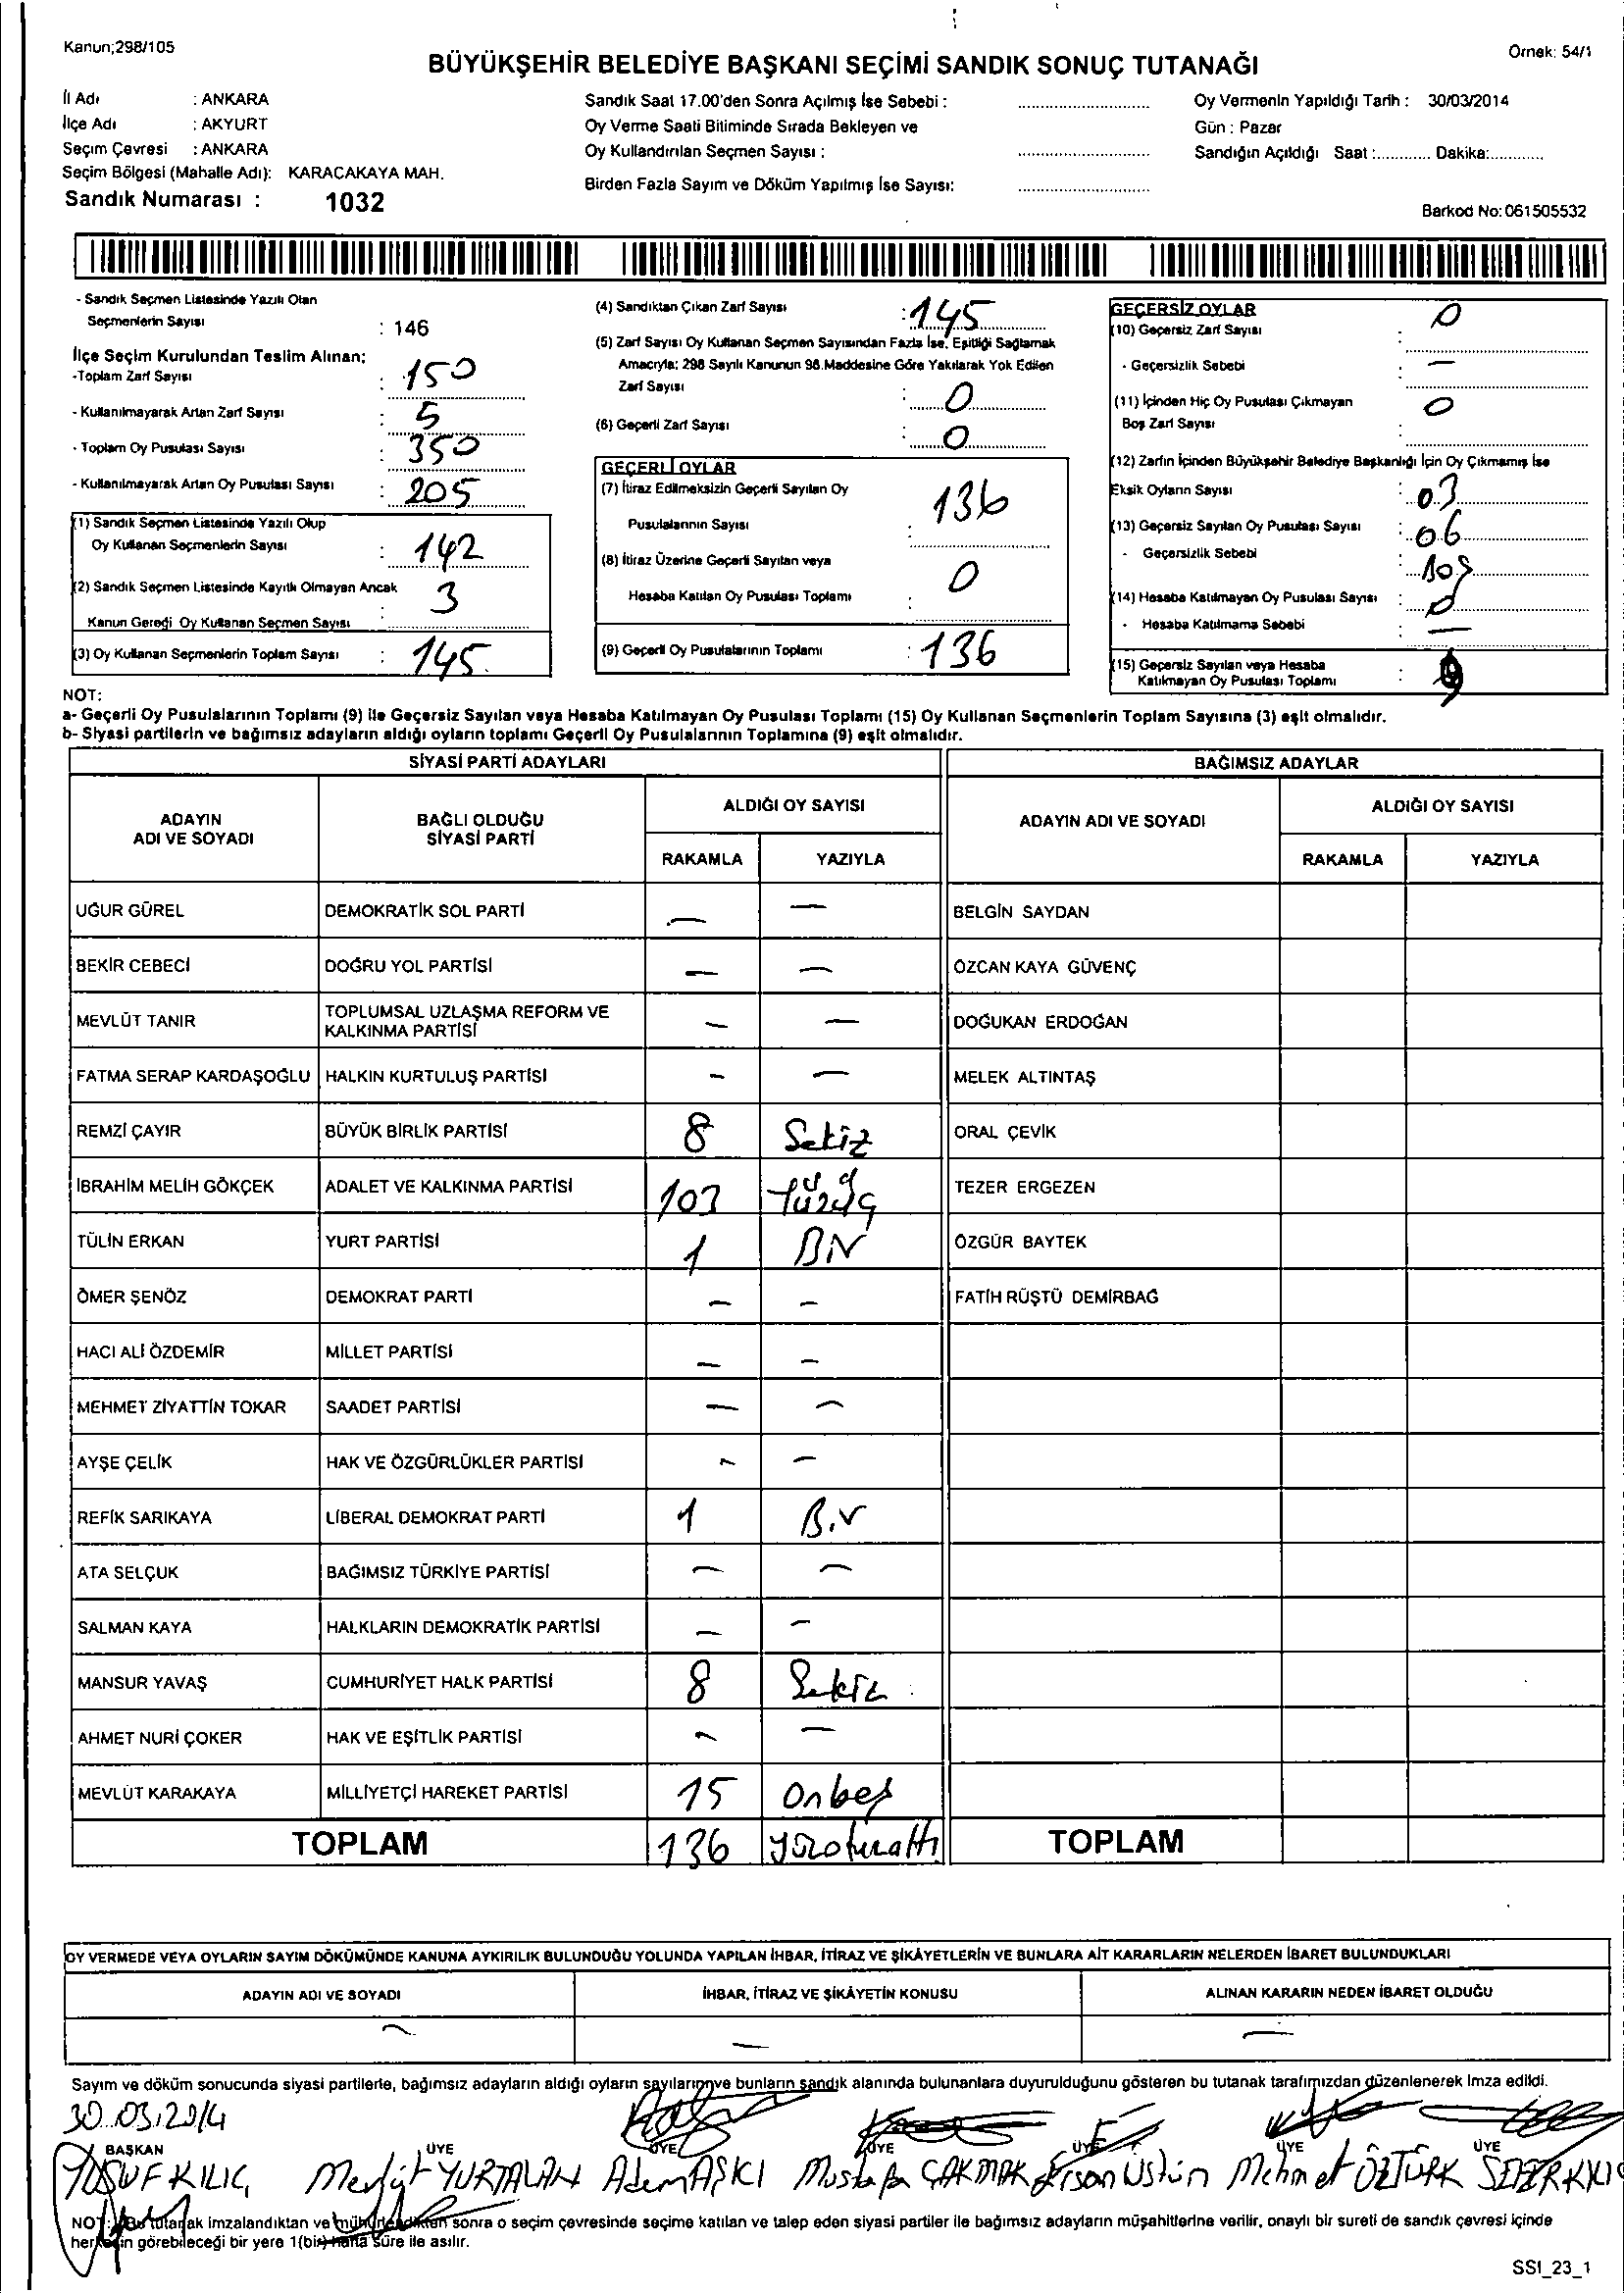 Kanun;298/105
Örnek: 54/1
BÜYÜKŞEHİR BELEDİYE BAŞKANI SEÇİMİ SANDIK SONUÇ TUTANAĞI
İl Adı : ANKARA
İlçe Adı : AKYURT
Seçim Çevresi : ANKARA
Seçim Bölgesi (Mahalle Adı): KARACAKAYA MAH.
Sandık Numarası : 1032
Sandık Saat 17.00'den Sonra Açılmış İse Sebebi :
Oy Verme Saati Bitiminde Sırada Bekleyen ve
Oy Kullandırılan Seçmen Sayısı :
Birden Fazla Sayım ve Döküm Yapılmış İse Sayısı:
Oy Vermenin Yapıldığı Tarih : 30/03/2014
Gün : Pazar
Sandığın Açıldığı Saat :............ Dakika:............
Barkod No:061505532
- Sandık Seçmen Listesinde Yazılı Olan
Seçmenlerin Sayısı : 146
İlçe Seçim Kurulundan Teslim Alınan:
-Toplam Zarf Sayısı : 150
- Kullanılmayarak Artan Zarf Sayısı : 5
- Toplam Oy Pusulası Sayısı : 350
- Kullanılmayarak Artan Oy Pusulası Sayısı : 205
(1) Sandık Seçmen Listesinde Yazılı Olup
Oy Kullanan Seçmenlerin Sayısı : 142
(2) Sandık Seçmen Listesinde Kayıtlı Olmayan Ancak
Kanun Gereği Oy Kullanan Seçmen Sayısı : 3
(3) Oy Kullanan Seçmenlerin Toplam Sayısı : 145
(4) Sandıktan Çıkan Zarf Sayısı : 145
(5) Zarf Sayısı Oy Kullanan Seçmen Sayısından Fazla İse, Eşitliği Sağlamak
Amacıyla; 298 Sayılı Kanunun 98.Maddesine Göre Yakılarak Yok Edilen
Zarf Sayısı : 0
(6) Geçerli Zarf Sayısı : 0
GEÇERLİ OYLAR
(7) İtiraz Edilmeksizin Geçerli Sayılan Oy
Pusulalarının Sayısı : 136
(8) İtiraz Üzerine Geçerli Sayılan veya
Hesaba Katılan Oy Pusulası Toplamı : 0
(9) Geçerli Oy Pusulalarının Toplamı : 136
GEÇERSİZ OYLAR
(10) Geçersiz Zarf Sayısı : 0
- Geçersizlik Sebebi : —
(11) İçinden Hiç Oy Pusulası Çıkmayan
Boş Zarf Sayısı : 0
(12) Zarfın İçinden Büyükşehir Belediye Başkanlığı İçin Oy Çıkmamış İse
Eksik Oyların Sayısı : 03
(13) Geçersiz Sayılan Oy Pusulası Sayısı : 06
- Geçersizlik Sebebi :
(14) Hesaba Katılmayan Oy Pusulası Sayısı : 0
- Hesaba Katılmama Sebebi : —
(15) Geçersiz Sayılan veya Hesaba
Katılmayan Oy Pusulası Toplamı : 9
NOT:
a- Geçerli Oy Pusulalarının Toplamı (9) ile Geçersiz Sayılan veya Hesaba Katılmayan Oy Pusulası Toplamı (15) Oy Kullanan Seçmenlerin Toplam Sayısına (3) eşit olmalıdır.
b- Siyasi partilerin ve bağımsız adayların aldığı oyların toplamı Geçerli Oy Pusulalarının Toplamına (9) eşit olmalıdır.
SİYASİ PARTİ ADAYLARI BAĞIMSIZ ADAYLAR
ADAYIN ADI VE SOYADI BAĞLI OLDUĞU SİYASİ PARTİ ALDIĞI OY SAYISI ADAYIN ADI VE SOYADI ALDIĞI OY SAYISI
RAKAMLA YAZIYLA RAKAMLA YAZIYLA
UĞUR GÜREL DEMOKRATİK SOL PARTİ — — BELGİN SAYDAN
BEKİR CEBECİ DOĞRU YOL PARTİSİ — — ÖZCAN KAYA GÜVENÇ
MEVLÜT TANIR TOPLUMSAL UZLAŞMA REFORM VE KALKINMA PARTİSİ — — DOĞUKAN ERDOĞAN
FATMA SERAP KARDAŞOĞLU HALKIN KURTULUŞ PARTİSİ — — MELEK ALTINTAŞ
REMZİ ÇAYIR BÜYÜK BİRLİK PARTİSİ 8 Sekiz ORAL ÇEVİK
İBRAHİM MELİH GÖKÇEK ADALET VE KALKINMA PARTİSİ 103 Yüzüç TEZER ERGEZEN
TÜLİN ERKAN YURT PARTİSİ 1 BİN ÖZGÜR BAYTEK
ÖMER ŞENÖZ DEMOKRAT PARTİ — — FATİH RÜŞTÜ DEMİRBAĞ
HACI ALİ ÖZDEMİR MİLLET PARTİSİ — —
MEHMET ZİYATTİN TOKAR SAADET PARTİSİ — —
AYŞE ÇELİK HAK VE ÖZGÜRLÜKLER PARTİSİ — —
REFİK SARIKAYA LİBERAL DEMOKRAT PARTİ 1 Bir
ATA SELÇUK BAĞIMSIZ TÜRKİYE PARTİSİ — —
SALMAN KAYA HALKLARIN DEMOKRATİK PARTİSİ — —
MANSUR YAVAŞ CUMHURİYET HALK PARTİSİ 8 Sekiz
AHMET NURİ ÇOKER HAK VE EŞİTLİK PARTİSİ — —
MEVLÜT KARAKAYA MİLLİYETÇİ HAREKET PARTİSİ 15 Onbeş
TOPLAM 136 yüzotuzaltı TOPLAM
OY VERMEDE VEYA OYLARIN SAYIM DÖKÜMÜNDE KANUNA AYKIRILIK BULUNDUĞU YOLUNDA YAPILAN İHBAR, İTİRAZ VE ŞİKÂYETLERİN VE BUNLARA AİT KARARLARIN NELERDEN İBARET BULUNDUKLARI
ADAYIN ADI VE SOYADI İHBAR, İTİRAZ VE ŞİKÂYETİN KONUSU ALINAN KARARIN NEDEN İBARET OLDUĞU
— — —
Sayım ve döküm sonucunda siyasi partilerle, bağımsız adayların aldığı oyların sayılarını ve bunların sandık alanında bulunanlara duyurulduğunu gösteren bu tutanak tarafımızdan düzenlenerek imza edildi.
30.03.2014
BAŞKAN ÜYE ÜYE ÜYE ÜYE ÜYE ÜYE
YUSUF KILIÇ Mevlüt YURTALAN Adem AŞKI Mustafa ÇAKMAK Ersan Üstün Mehmet ÖZTÜRK
NOT: Bu tutanak imzalandıktan ve mühürlendikten sonra o seçim çevresinde seçime katılan ve talep eden siyasi partiler ile bağımsız adayların müşahitlerine verilir, onaylı bir sureti de sandık çevresi içinde
herkesin görebileceği bir yere 1(bir) hafta süre ile asılır.
SSI_23_1